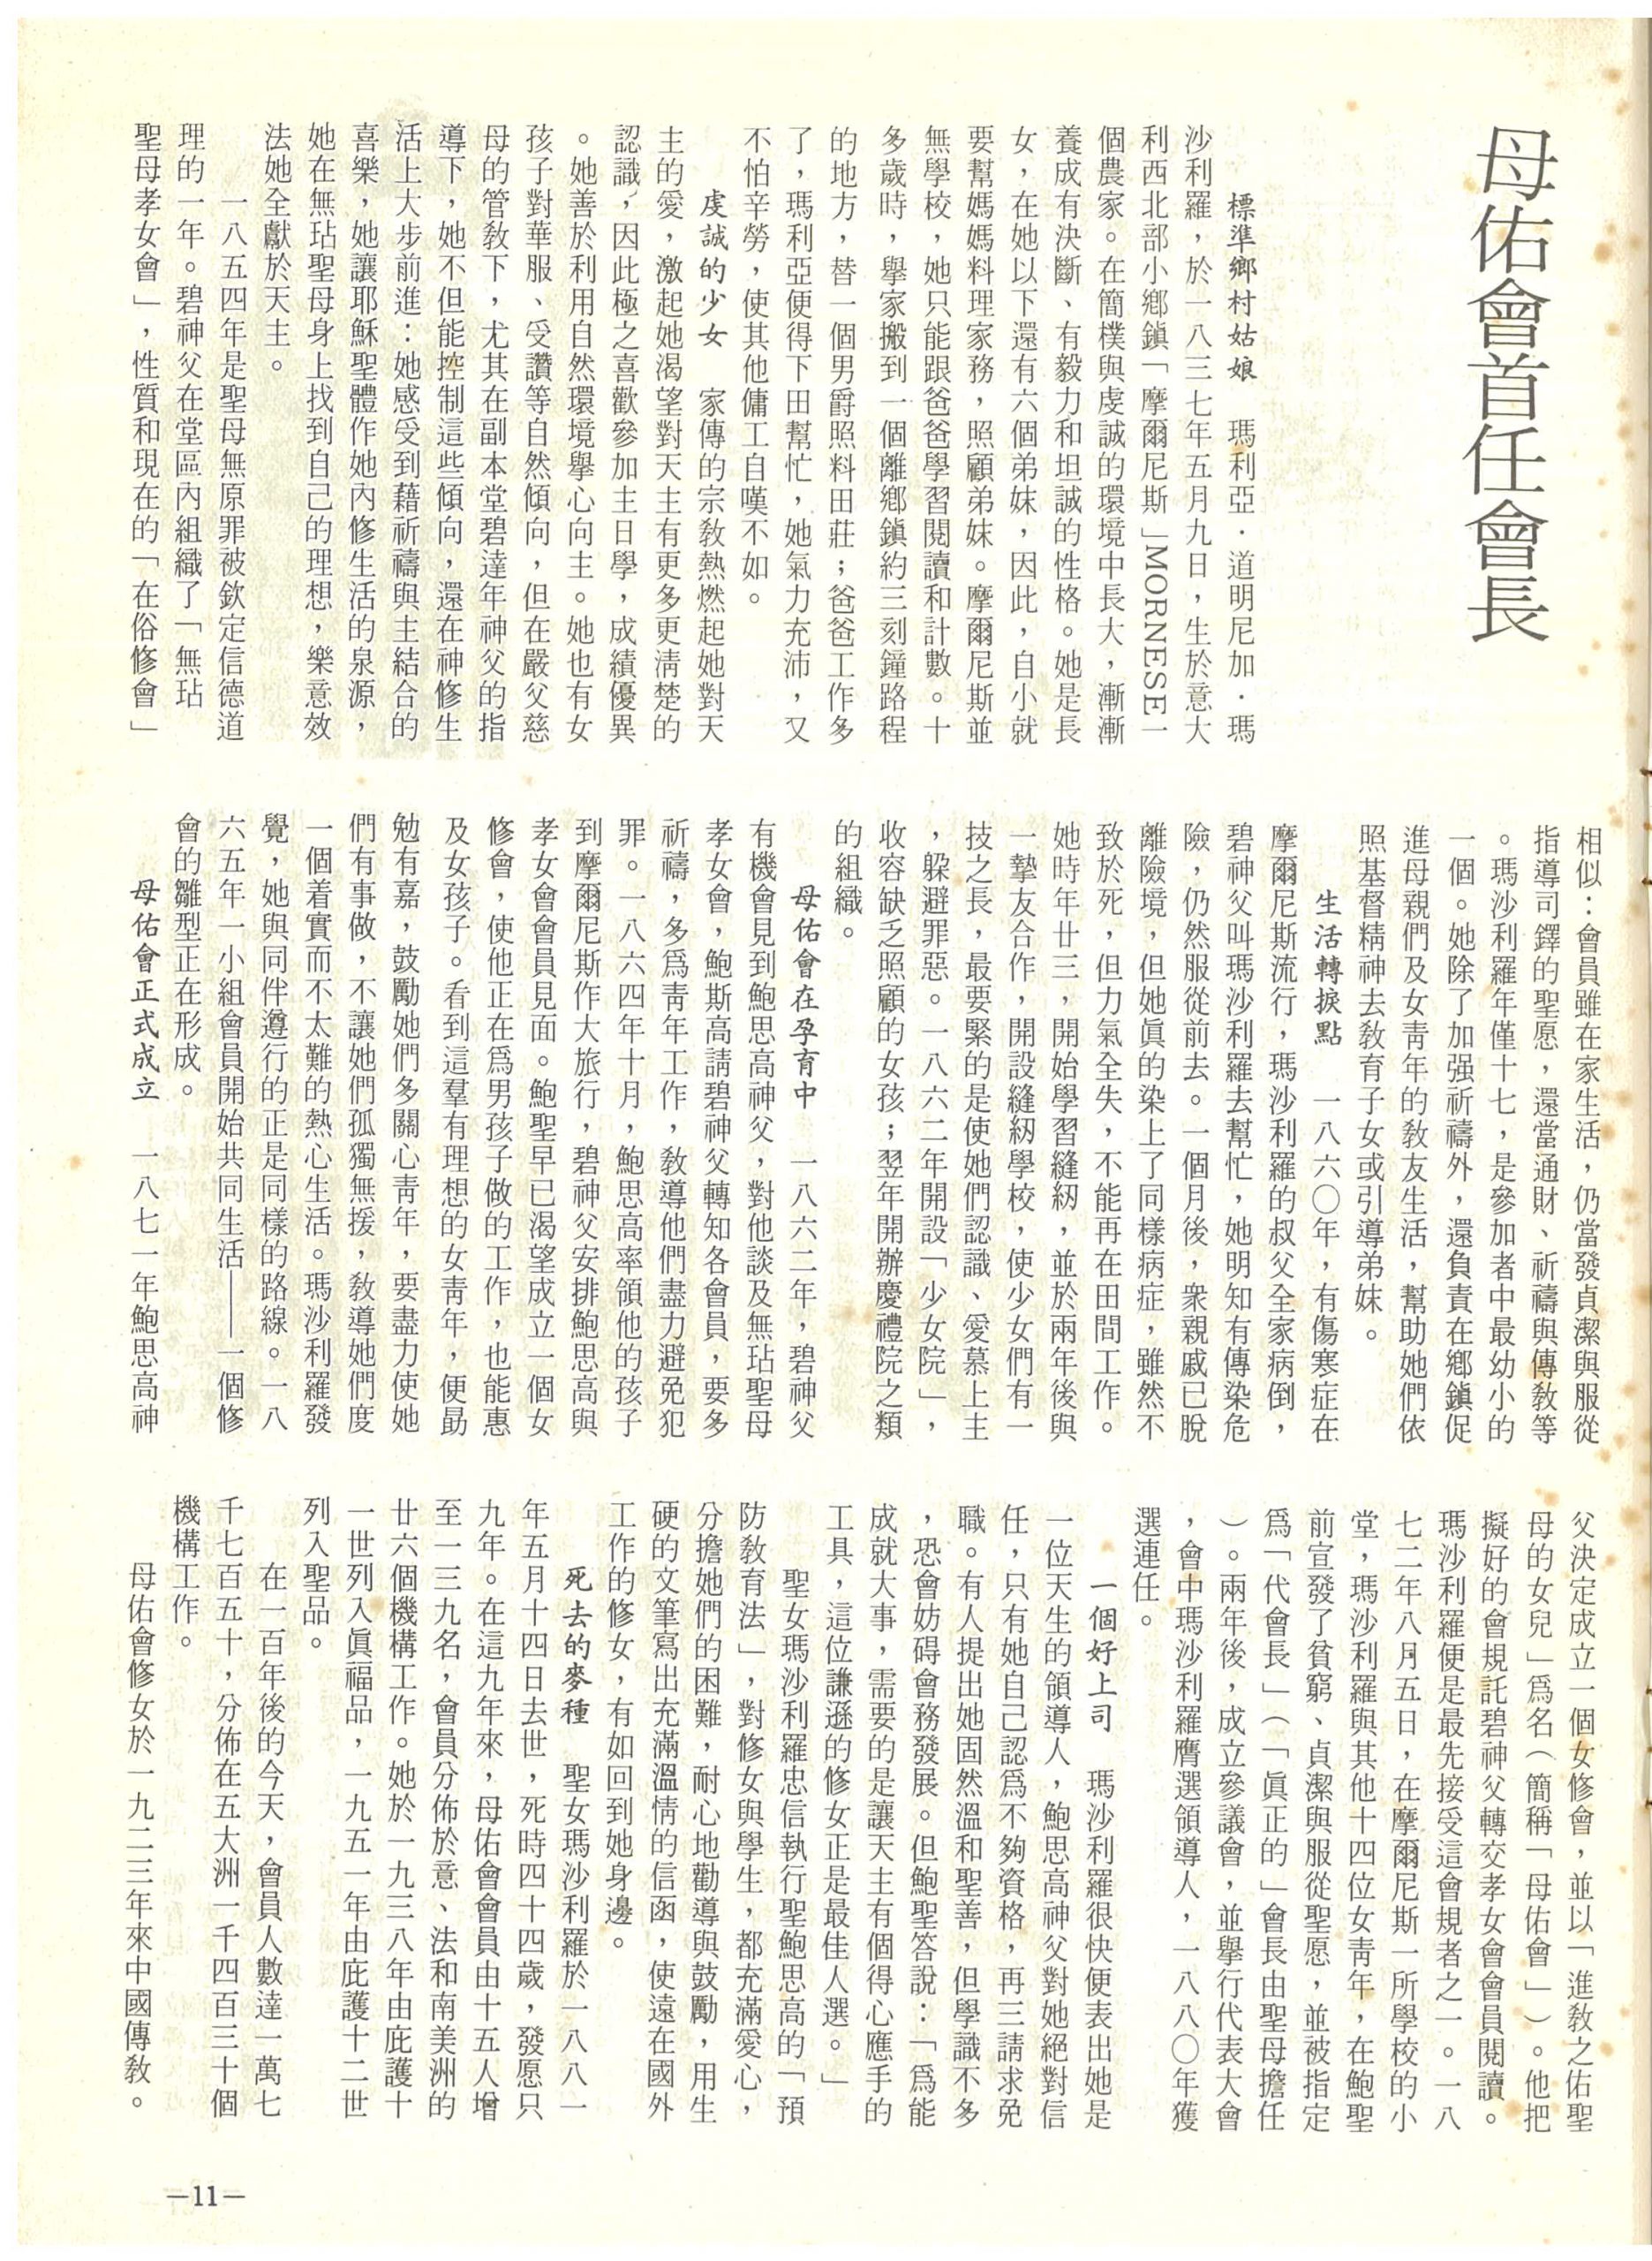 母佑會首任會長
標準鄉村姑娘　瑪利亞．道明尼加．瑪
沙利羅，於一八三七年五月九日，生於意大
利西北部小鄉鎮「摩爾尼斯」MORNESE一
個農家。在簡樸與虔誠的環境中長大，漸漸
養成有決斷、有毅力和坦誠的性格。她是長
女，在她以下還有六個弟妹，因此，自小就
要幫媽媽料理家務，照顧弟妹。摩爾尼斯並
無學校，她只能跟爸爸學習閱讀和計數。十
多歲時，舉家搬到一個離鄉鎮約三刻鐘路程
的地方，替一個男爵照料田莊；爸爸工作多
了，瑪利亞便得下田幫忙，她氣力充沛，又
不怕辛勞，使其他傭工自嘆不如。
虔誠的少女　家傳的宗教熱燃起她對天
主的愛，激起她渴望對天主有更多更清楚的
認識，因此極之喜歡參加主日學，成績優異
。她善於利用自然環境舉心向主。她也有女
孩子對華服、受讚等自然傾向，但在嚴父慈
母的管教下，尤其在副本堂碧達年神父的指
導下，她不但能控制這些傾向，還在神修生
活上大步前進：她感受到藉祈禱與主結合的
喜樂，她讓耶穌聖體作她內修生活的泉源，
她在無玷聖母身上找到自己的理想，樂意效
法她全獻於天主。
一八五四年是聖母無原罪被欽定信德道
理的一年。碧神父在堂區內組織了「無玷
聖母孝女會」，性質和現在的「在俗修會」
相似：會員雖在家生活，仍當發貞潔與服從
指導司鐸的聖愿，還當通財、祈禱與傳教等
。瑪沙利羅年僅十七，是參加者中最幼小的
一個。她除了加强祈禱外，還負責在鄉鎮促
進母親們及女青年的教友生活，幫助她們依
照基督精神去教育子女或引導弟妹。
生活轉捩點　一八六〇年，有傷寒症在
摩爾尼斯流行，瑪沙利羅的叔父全家病倒，
碧神父叫瑪沙利羅去幫忙，她明知有傳染危
險，仍然服從前去。一個月後，衆親戚已脫
離險境，但她眞的染上了同樣病症，雖然不
致於死，但力氣全失，不能再在田間工作。
她時年廿三，開始學習縫紉，並於兩年後與
一摯友合作，開設縫紉學校，使少女們有一
技之長，最要緊的是使她們認識、愛慕上主
，躲避罪惡。一八六二年開設「少女院」，
收容缺乏照顧的女孩；翌年開辦慶禮院之類
的組織。
母佑會在孕育中　一八六二年，碧神父
有機會見到鮑思高神父，對他談及無玷聖母
孝女會，鮑斯高請碧神父轉知各會員，要多
祈禱，多爲青年工作，教導他們盡力避免犯
罪。一八六四年十月，鮑思高率領他的孩子
到摩爾尼斯作大旅行，碧神父安排鮑思高與
孝女會會員見面。鮑聖早已渴望成立一個女
修會，使他正在爲男孩子做的工作，也能惠
及女孩子。看到這羣有理想的女青年，便勗
勉有嘉，鼓勵她們多關心青年，要盡力使她
們有事做，不讓她們孤獨無援，教導她們度
一個着實而不太難的熱心生活。瑪沙利羅發
覺，她與同伴遵行的正是同樣的路線。一八
六五年一小組會員開始共同生活——一個修
會的雛型正在形成。
母佑會正式成立　一八七一年鮑思高神
父決定成立一個女修會，並以「進教之佑聖
母的女兒」爲名（簡稱「母佑會」）。他把
擬好的會規託碧神父轉交孝女會會員閱讀。
瑪沙利羅便是最先接受這會規者之一。一八
七二年八月五日，在摩爾尼斯一所學校的小
堂，瑪沙利羅與其他十四位女青年，在鮑聖
前宣發了貧窮、貞潔與服從聖愿，並被指定
爲「代會長」（「眞正的」會長由聖母擔任
）。兩年後，成立參議會，並舉行代表大會
，會中瑪沙利羅膺選領導人，一八八〇年獲
選連任。
一個好上司　瑪沙利羅很快便表出她是
一位天生的領導人，鮑思高神父對她絕對信
任，只有她自己認爲不夠資格，再三請求免
職。有人提出她固然溫和聖善，但學識不多
，恐會妨碍會務發展。但鮑聖答說：「爲能
成就大事，需要的是讓天主有個得心應手的
工具，這位謙遜的修女正是最佳人選。」
聖女瑪沙利羅忠信執行聖鮑思高的「預
防教育法」，對修女與學生，都充滿愛心，
分擔她們的困難，耐心地勸導與鼓勵，用生
硬的文筆寫出充滿溫情的信函，使遠在國外
工作的修女，有如回到她身邊。
死去的麥種　聖女瑪沙利羅於一八八一
年五月十四日去世，死時四十四歲，發愿只
九年。在這九年來，母佑會會員由十五人增
至一三九名，會員分佈於意、法和南美洲的
廿六個機構工作。她於一九三八年由庇護十
一世列入眞福品，一九五一年由庇護十二世
列入聖品。
在一百年後的今天，會員人數達一萬七
千七百五十，分佈在五大洲一千四百三十個
機構工作。
母佑會修女於一九二三年來中國傳教。
—11—